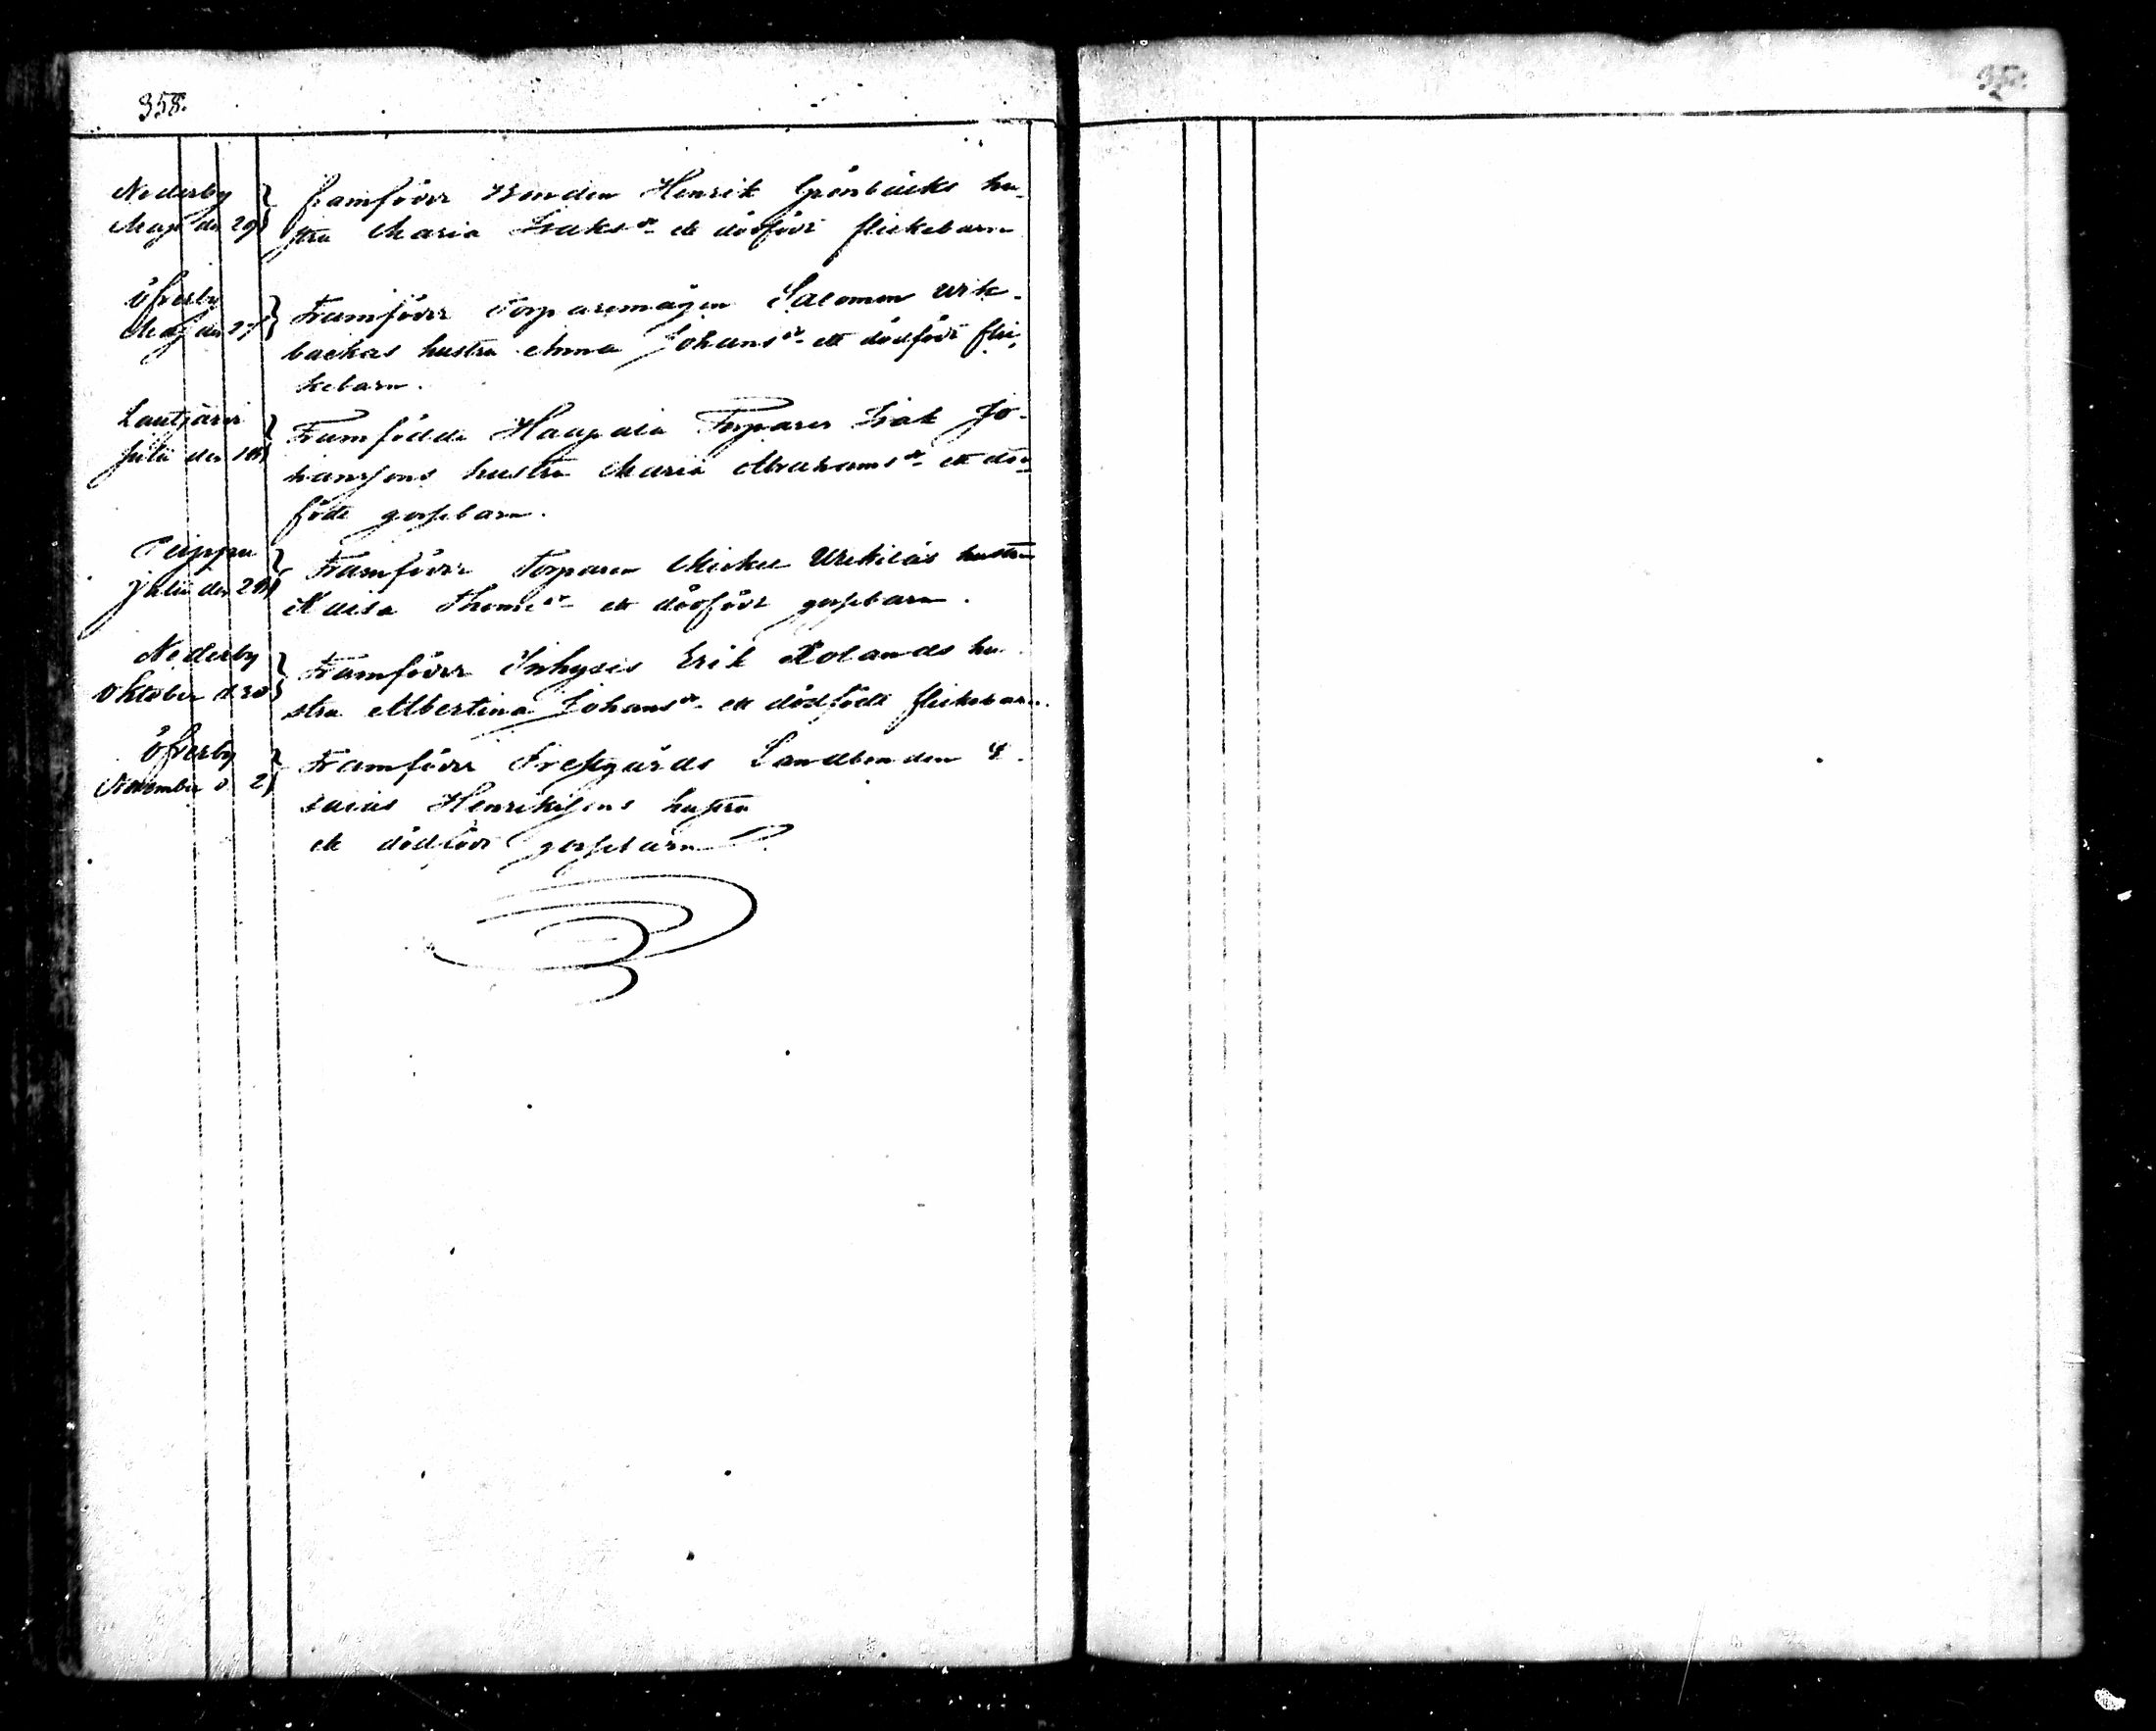 358.
Nederby
Maji den 29
framfödde Bonden Henrik Grönbacks hu-
stru Maria Isaksdr ett dödfödt flickebarn
Öfverby
Maji den 27
Framfödde Torparemågen Salomon Wik-
backas hustru Anna Johansdr ett dödfödt flic-
kebarn.
Lautjärvi
Julii den
Framfödde Haapala Torparen Isak Jo-
hanssons hustru Maria Abrahamsdr ett död-
födt gossebarn.
Peippu
Julii den 29
Framfödde Torparen Mickel hustru
Kaisa Thomedr ett dödfödt gossebarn.
Nederby
Oktober d. 30
Framfödde Inhyses Erik Rolands hu-
stru Albertina Johansdr ett dödfödt flickebarn.
Öfverby
November d. 2
Framfödde Landbonden E-
saias Henrikssons hustru
ett dödfödt gossebarn